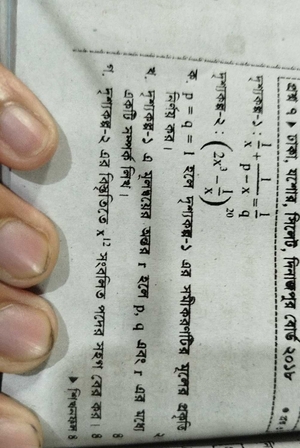 প্রশ্ন ৭ ▶ ঢাকা, যশোর, সিলেট, দিনাজপুর বোর্ড ২০১৮
দৃশ্যকল্প-১ : 1/x + 1/(p − x) = 1/q
দৃশ্যকল্প-২ : (2x³ − 1/x)²⁰
ক. p = q = 1 হলে দৃশ্যকল্প-১ এর সমীকরণটির মূলের প্রকৃতি
নির্ণয় কর। ২
খ. দৃশ্যকল্প-১ এ মূলদ্বয়ের অন্তর r হলে p, q এবং r এর মধ্যে
একটি সম্পর্ক লিখ। ৪
গ. দৃশ্যকল্প-২ এর বিস্তৃতিতে x¹² সংবলিত পদের সহগ বের কর। ৪
▶ শিখনফল ৪